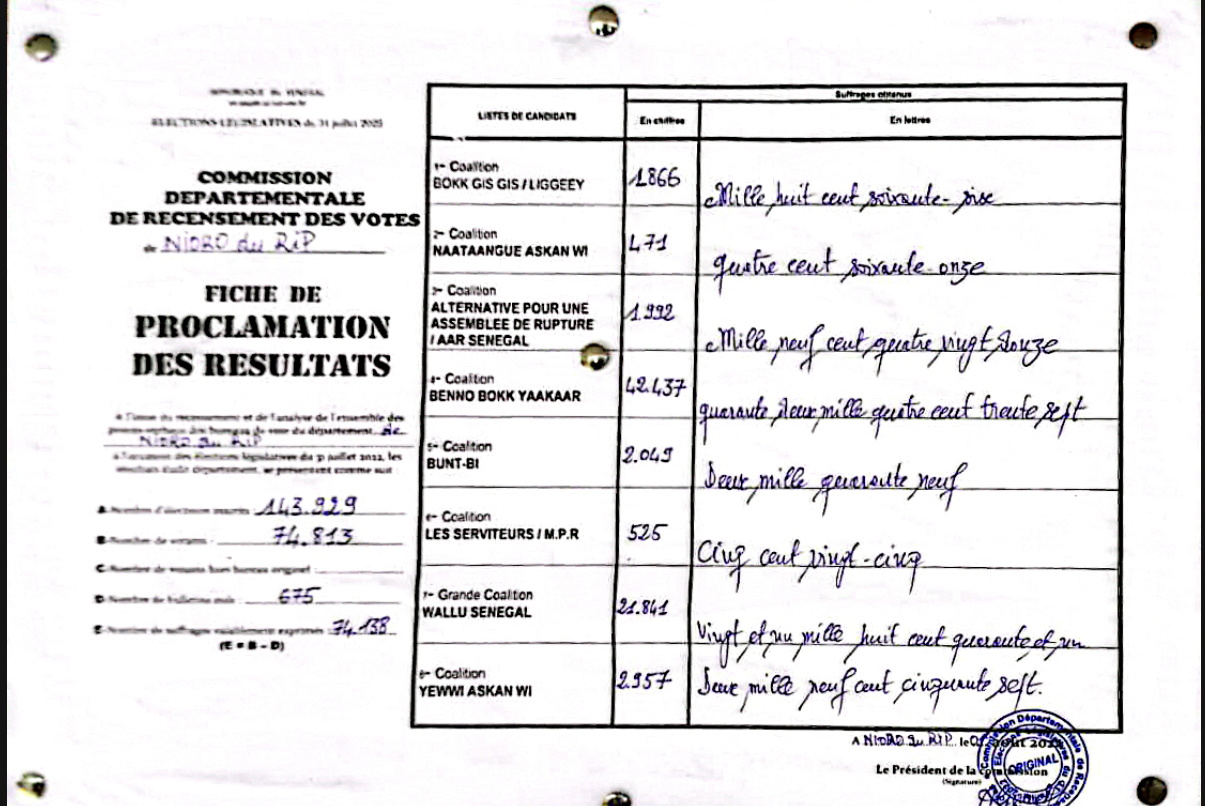 REPUBLIQUE DU SENEGAL
ELECTIONS LEGISLATIVES du 31 juillet 2022
COMMISSION
DEPARTEMENTALE
DE RECENSEMENT DES VOTES
de NIORO du RiP
FICHE DE
PROCLAMATION
DES RESULTATS
A l'issue du recensement et de l'analyse de l'ensemble des
procès-verbaux des bureaux de vote du département de
NIORO du RiP
à l'occasion des élections législatives du 31 juillet 2022, les
résultats dudit département, se présentent comme suit :
A-Nombre d'électeurs inscrits : 143.929
B-Nombre de votants : 74.813
C-Nombre de votants hors bureau originel :
D-Nombre de bulletins nuls : 675
E-Nombre de suffrages valablement exprimés : 74.138
(E = B - D)
LISTES DE CANDIDATS
Suffrages obtenus
En chiffres
En lettres
1- Coalition
BOKK GIS GIS / LIGGEEY
1866
Mille huit cent soixante- six
2- Coalition
NAATAANGUE ASKAN WI
471
quatre cent soixante-onze
3- Coalition
ALTERNATIVE POUR UNE
ASSEMBLEE DE RUPTURE
/ AAR SENEGAL
1.992
Mille neuf cent quatre vingt douze
4- Coalition
BENNO BOKK YAAKAAR
42.437
quarante deux mille quatre cent trente sept
5- Coalition
BUNT-BI
2.049
Deux mille quarante neuf
6- Coalition
LES SERVITEURS / M.P.R
525
Cinq cent vingt-cinq
7- Grande Coalition
WALLU SENEGAL
21.841
Vingt et un mille huit cent quarante et un
8- Coalition
YEWWI ASKAN WI
2.957
Deux mille neuf cent cinquante sept.
A NIORO du RIP, le août
Le Président de la commission
(Signature)
Commission Départementale de
ORIGINAL